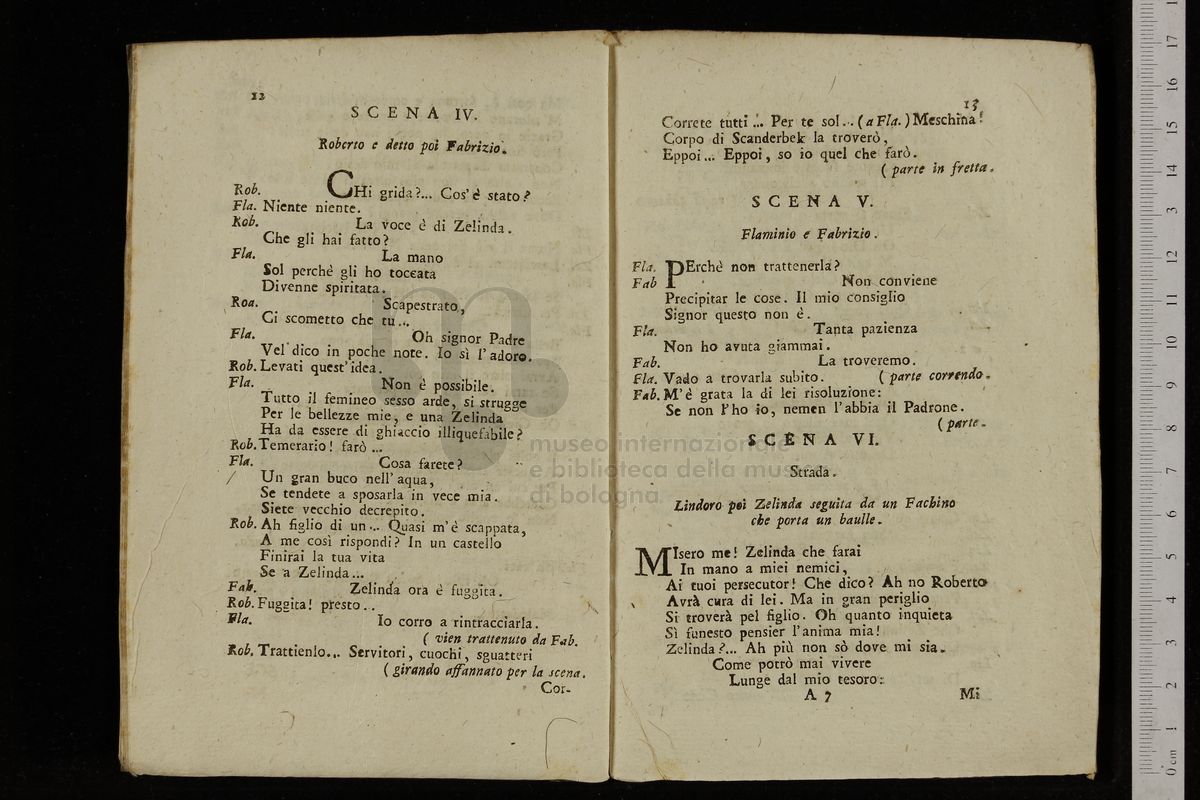 12
SCENA IV.
Roberto e detto poi Fabrizio.
Rob. CHi grida?... Cos'è stato?
Fla. Niente niente.
Rob. La voce è di Zelinda.
Che gli hai fatto?
Fla. La mano
Sol perchè gli ho toccata
Divenne spiritata.
Roa. Scapestrato,
Ci scometto che tu...
Fla. Oh signor Padre
Vel dico in poche note. Io sì l'adoro.
Rob. Levati quest'idea.
Fla. Non è possibile.
Tutto il femineo sesso arde, si strugge
Per le bellezze mie, e una Zelinda
Ha da essere di ghiaccio illiquefabile?
Rob. Temerario! farò ...
Fla. Cosa farete?
Un gran buco nell'aqua,
Se tendete a sposarla in vece mia.
Siete vecchio decrepito.
Rob. Ah figlio di un... Quasi m'è scappata,
A me così rispondi? In un castello
Finirai la tua vita
Se a Zelinda...
Fab. Zelinda ora è fuggita.
Rob. Fuggita! presto..
Fla. Io corro a rintracciarla.
( vien trattenuto da Fab.
Rob. Trattienlo... Servitori, cuochi, sguatteri
( girando affannato per la scena.
Cor-
13
Correte tutti ... Per te sol... (a Fla.) Meschina!
Corpo di Scanderbek la troverò,
Eppoi... Eppoi, so io quel che farò.
( parte in fretta.
SCENA V.
Flaminio e Fabrizio.
Fla. PErchè non trattenerla?
Fab Non conviene
Precipitar le cose. Il mio consiglio
Signor questo non è.
Fla. Tanta pazienza
Non ho avuta giammai.
Fab. La troveremo.
Fla. Vado a trovarla subito. ( parte correndo.
Fab. M'è grata la di lei risoluzione:
Se non l'ho io, nemen l'abbia il Padrone.
( parte.
SCENA VI.
Strada.
Lindoro poi Zelinda seguita da un Fachino
che porta un baulle.
MIsero me! Zelinda che farai
In mano a miei nemici,
Ai tuoi persecutor! Che dico? Ah no Roberto
Avrà cura di lei. Ma in gran periglio
Si troverà pel figlio. Oh quanto inquieta
Sì funesto pensier l'anima mia!
Zelinda?... Ah più non sò dove mi sia.
Come potrò mai vivere
Lunge dal mio tesoro:
A 7 Mi
museo internazionale
e biblioteca della musica
di bologna
0 cm 1 2 3 4 5 6 7 8 9 10 11 12 13 14 15 16 17